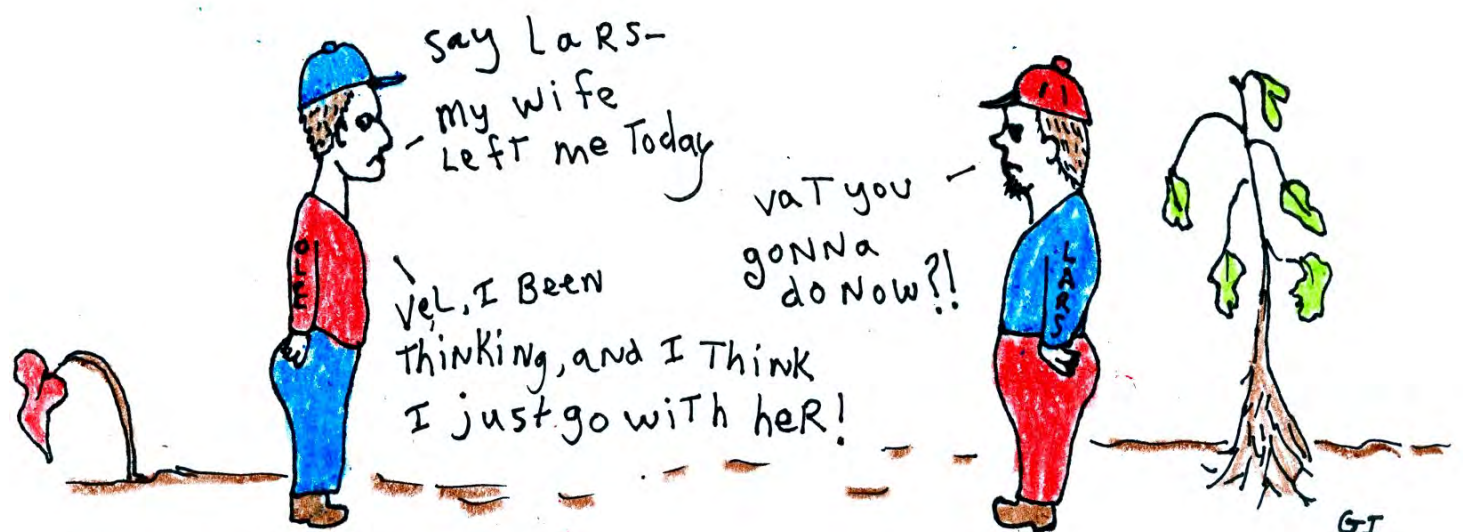 say Lars-
my wife
Left me Today
vaT you
goNNa
do Now?!
VeL, I BeeN
ThiNKiNg, aNd I ThiNK
I just go wiTh heR!
OLE
LARS
GJ